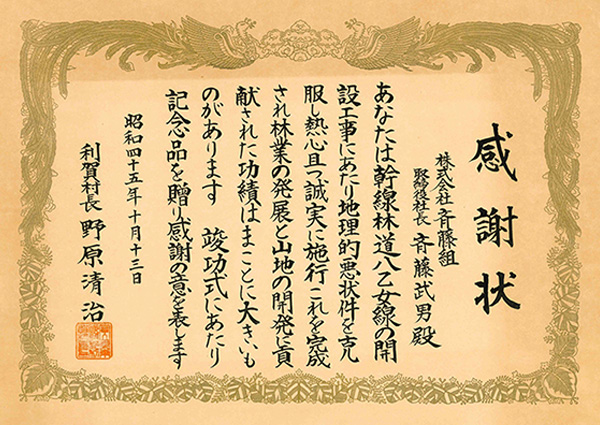 感謝状
株式会社斉藤組
取締役社長 斉藤武男殿
あなたは幹線林道八乙女線の開
設工事にあたり地理的悪状件を克
服し熱心且つ誠実に施行これを完成
され林業の発展と山地の開発に貢
献された功績はまことに大きいも
のがあります 竣功式にあたり
記念品を贈り感謝の意を表します
昭和四十五年十月十三日
利賀村長 野原清治